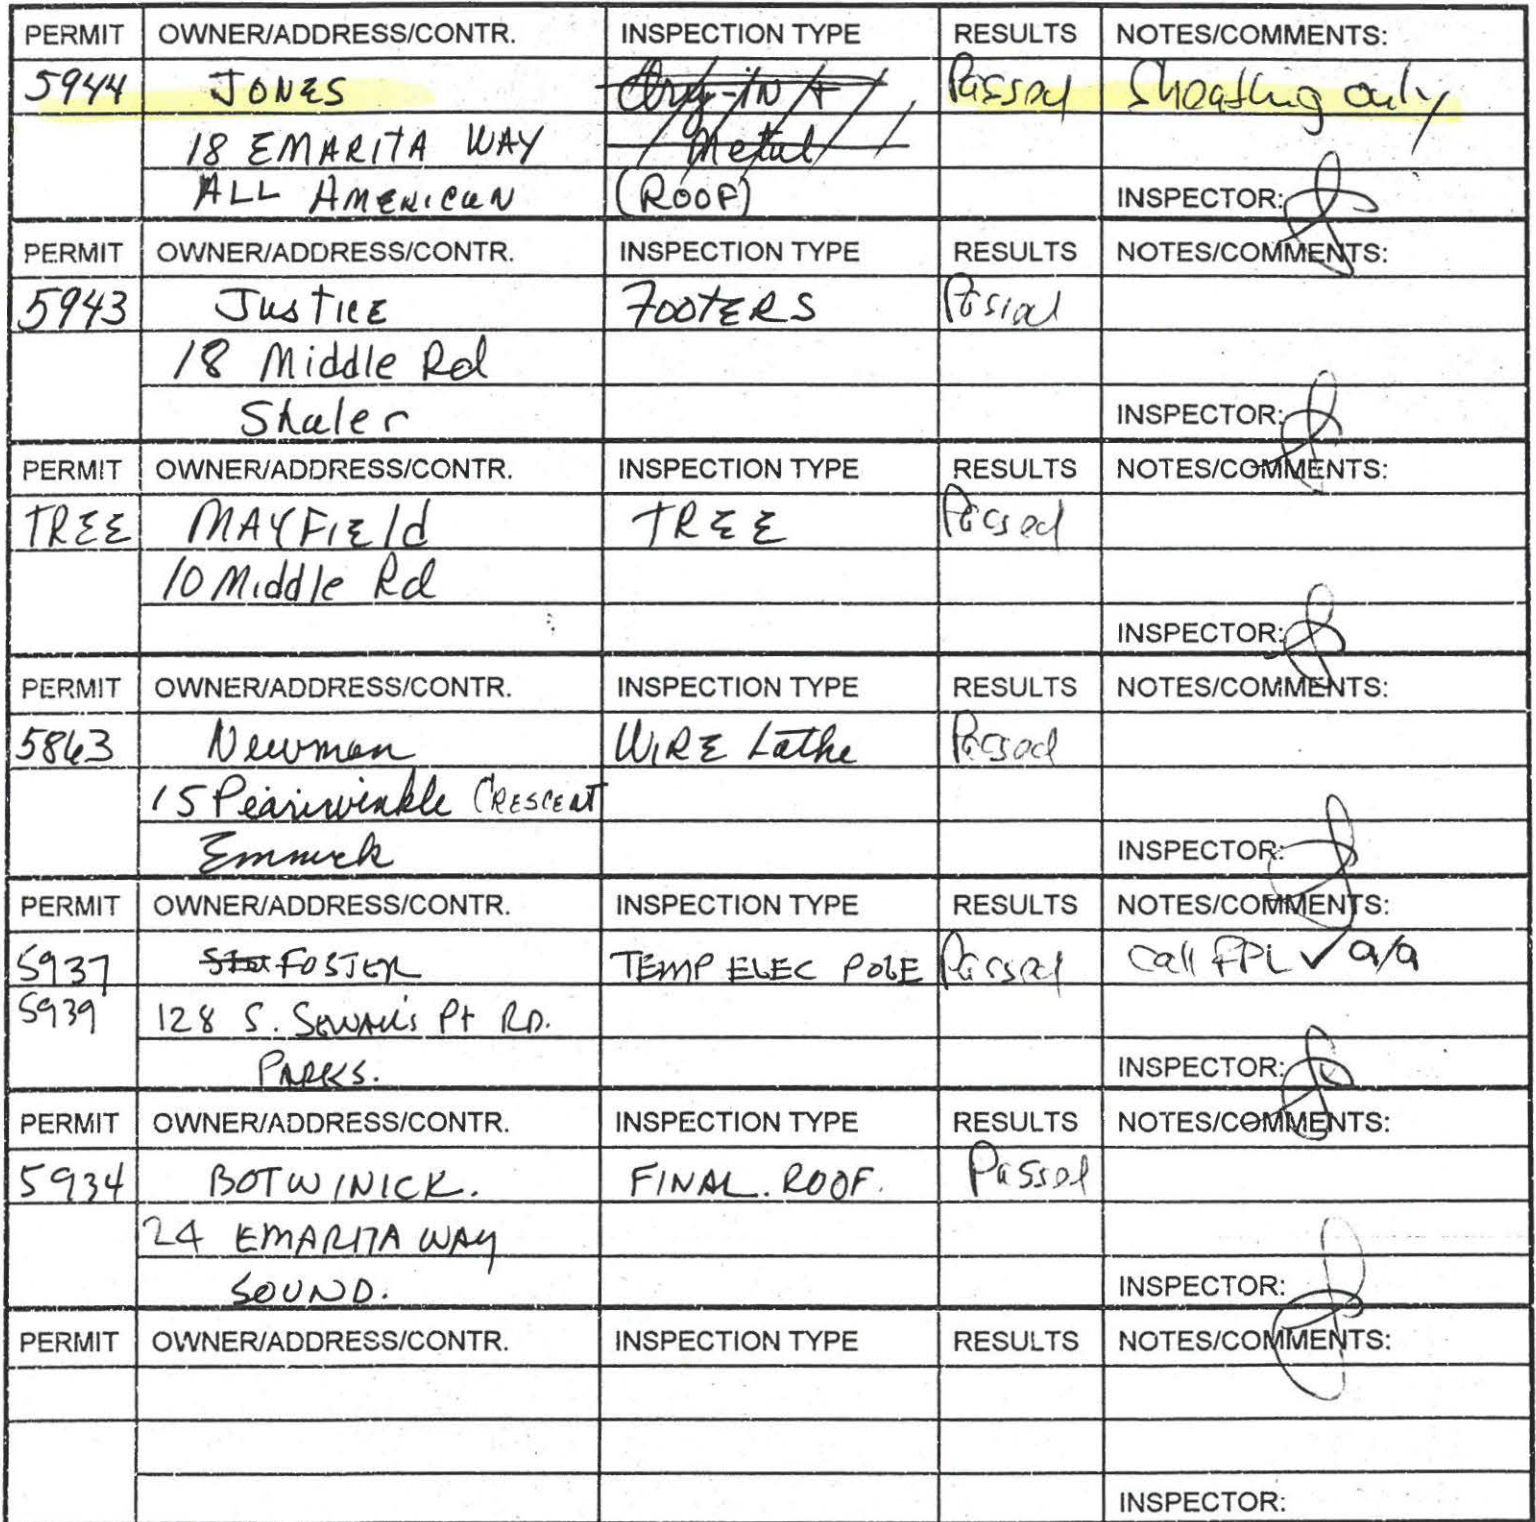 PERMIT OWNER/ADDRESS/CONTR. INSPECTION TYPE RESULTS NOTES/COMMENTS:
5944 JONES Dry-IN + Passed Sheathing only
18 EMARITA WAY Metal
ALL AMERICAN (ROOF) INSPECTOR:
PERMIT OWNER/ADDRESS/CONTR. INSPECTION TYPE RESULTS NOTES/COMMENTS:
5943 JUSTICE FOOTERS Passed
18 Middle Rd
Shaler INSPECTOR:
PERMIT OWNER/ADDRESS/CONTR. INSPECTION TYPE RESULTS NOTES/COMMENTS:
TREE MAYFIELD TREE Passed
10 Middle Rd
INSPECTOR:
PERMIT OWNER/ADDRESS/CONTR. INSPECTION TYPE RESULTS NOTES/COMMENTS:
5863 Newman WIRE Lathe Passed
15 Peariwinkle CRESCENT
Emmick INSPECTOR:
PERMIT OWNER/ADDRESS/CONTR. INSPECTION TYPE RESULTS NOTES/COMMENTS:
5937 FOSTER TEMP ELEC POLE Passed Call FPL ✓ a/a
5939 128 S. SEWALL'S Pt RD.
PARKS. INSPECTOR:
PERMIT OWNER/ADDRESS/CONTR. INSPECTION TYPE RESULTS NOTES/COMMENTS:
5934 BOTWINICK. FINAL. ROOF. Passed
24 EMARITA WAY
SOUND. INSPECTOR:
PERMIT OWNER/ADDRESS/CONTR. INSPECTION TYPE RESULTS NOTES/COMMENTS:
INSPECTOR: